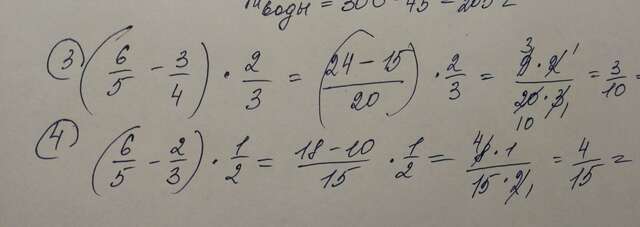 воды = 300 - 45 - 205 г
3) (6/5 - 3/4) · 2/3 = (24 - 15 / 20) · 2/3 = 9 · 2 / 20 · 3 = 3/10 =
4) (6/5 - 2/3) · 1/2 = 18 - 10 / 15 · 1/2 = 8 · 1 / 15 · 2 = 4/15 =